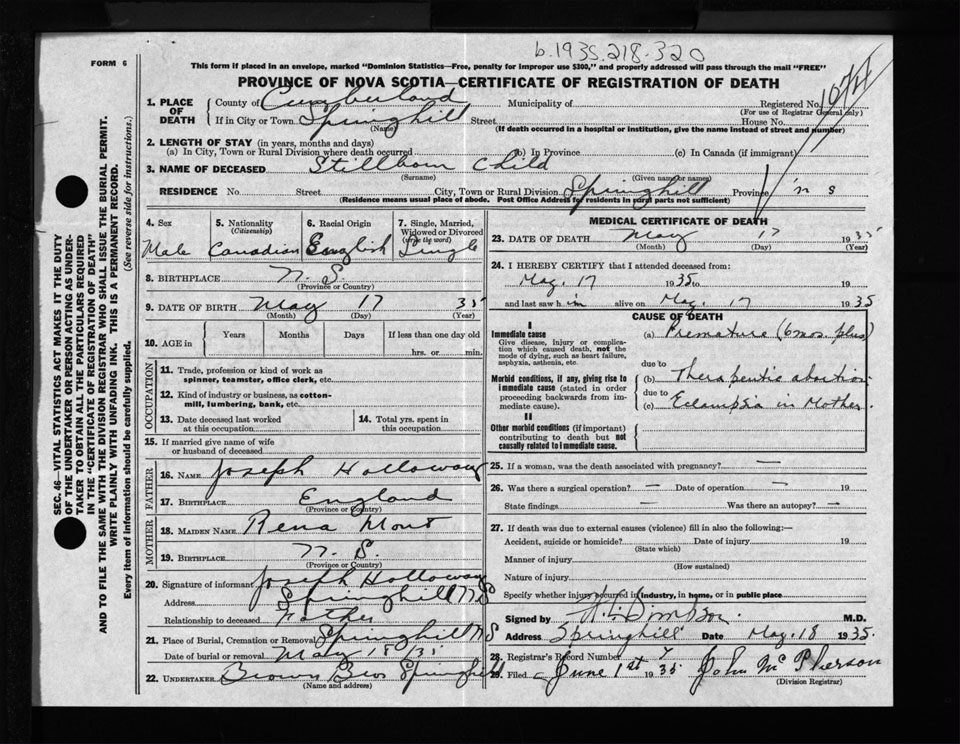 b.1935.218.320
FORM 6
This form if placed in an envelope, marked "Dominion Statistics—Free, penalty for improper use $300," and properly addressed will pass through the mail "FREE"
PROVINCE OF NOVA SCOTIA—CERTIFICATE OF REGISTRATION OF DEATH
1. PLACE OF DEATH
County of Cumberland Municipality of Registered No.
(For use of Registrar General only)
If in City or Town Springhill Street House No.
(Name) (If death occurred in a hospital or institution, give the name instead of street and number)
2. LENGTH OF STAY (in years, months and days)
(a) In City, Town or Rural Division where death occurred (b) In Province (c) In Canada (if immigrant)
3. NAME OF DECEASED Stillborn Child
(Surname) (Given name or names)
RESIDENCE No. Street City, Town or Rural Division Springhill Province N S
(Residence means usual place of abode. Post Office Address for residents in rural parts not sufficient)
4. Sex Male
5. Nationality (Citizenship) Canadian
6. Racial Origin English
7. Single, Married, Widowed or Divorced (write the word) Single
8. BIRTHPLACE N. S.
(Province or Country)
9. DATE OF BIRTH May 17 35
(Month) (Day) (Year)
10. AGE in Years Months Days If less than one day old
hrs. or min.
OCCUPATION
11. Trade, profession or kind of work as spinner, teamster, office clerk, etc.
12. Kind of industry or business, as cotton-mill, lumbering, bank, etc.
13. Date deceased last worked at this occupation
14. Total yrs. spent in this occupation
15. If married give name of wife or husband of deceased
FATHER
16. NAME Joseph Holloway
17. BIRTHPLACE England
(Province or Country)
MOTHER
18. MAIDEN NAME Rena Mont
19. BIRTHPLACE N. S.
(Province or Country)
20. Signature of informant Joseph Holloway
Address Springhill NS
Relationship to deceased Father
21. Place of Burial, Cremation or Removal Springhill NS
Date of burial or removal May 18/35
22. UNDERTAKER Brown Bros Springhill
(Name and address)
MEDICAL CERTIFICATE OF DEATH
23. DATE OF DEATH May 17 1935
(Month) (Day) (Year)
24. I HEREBY CERTIFY that I attended deceased from:
May. 17 1935 to 19
and last saw h im alive on May. 17 1935
CAUSE OF DEATH
I
Immediate cause
Give disease, injury or complication which caused death, not the mode of dying, such as heart failure, asphyxia, asthenia, etc.
(a) Premature (6 mos. plus)
due to
Morbid conditions, if any, giving rise to immediate cause (stated in order proceeding backwards from immediate cause).
(b) Therapeutic abortion
due to
(c) Eclampsia in Mother.
II
Other morbid conditions (if important) contributing to death but not causally related to immediate cause.
25. If a woman, was the death associated with pregnancy? —
26. Was there a surgical operation? — Date of operation — 19
State findings — Was there an autopsy? —
27. If death was due to external causes (violence) fill in also the following:—
Accident, suicide or homicide? Date of injury 19
(State which)
Manner of injury
(How sustained)
Nature of injury
Specify whether injury occurred in industry, in home, or in public place
Signed by Simpson. M.D.
Address Springhill Date May. 18 1935.
28. Registrar's Record Number 7
29. Filed June 1st 1935 John McPherson
(Division Registrar)
SEC. 46—VITAL STATISTICS ACT MAKES IT THE DUTY
OF THE UNDERTAKER OR PERSON ACTING AS UNDER-
TAKER TO OBTAIN ALL THE PARTICULARS REQUIRED
IN THE "CERTIFICATE OF REGISTRATION OF DEATH"
AND TO FILE THE SAME WITH THE DIVISION REGISTRAR WHO SHALL ISSUE THE BURIAL PERMIT.
WRITE PLAINLY WITH UNFADING INK. THIS IS A PERMANENT RECORD.
Every item of information should be carefully supplied. (See reverse side for instructions.)